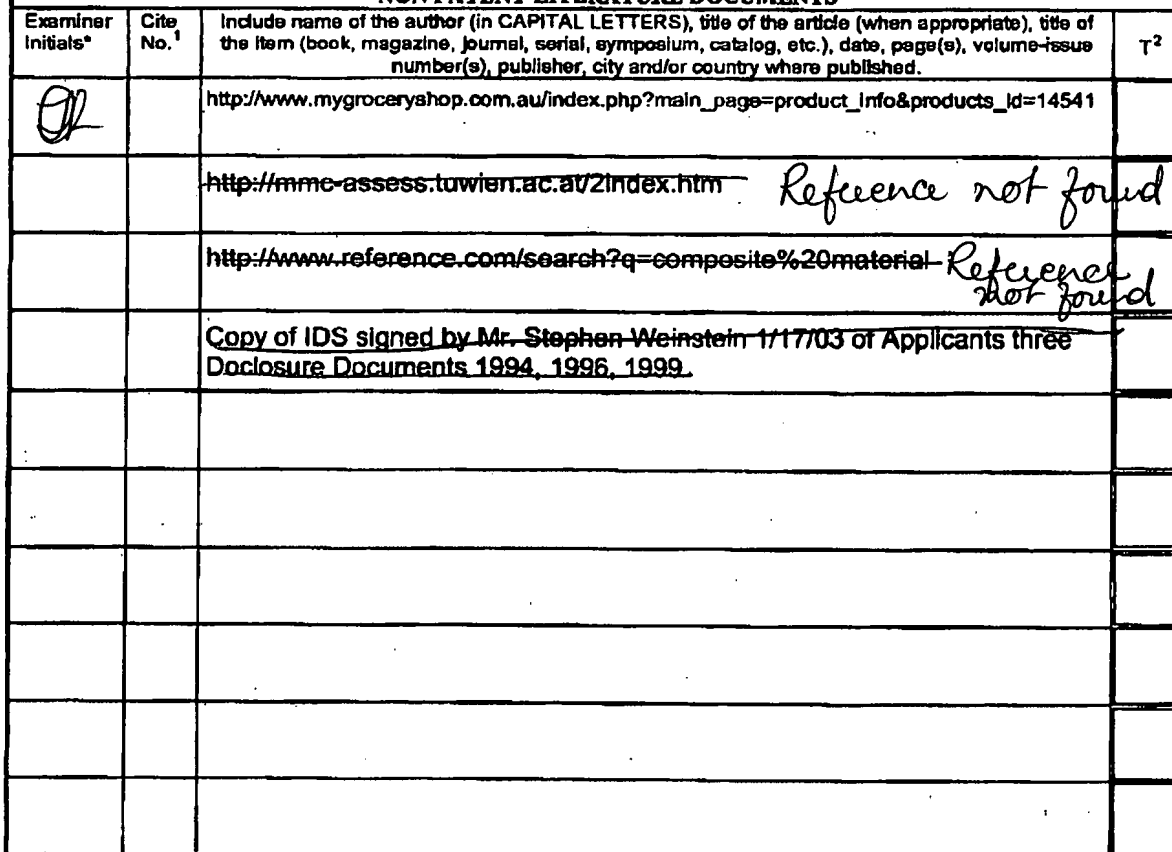 NON PATENT LITERATURE DOCUMENTS
Examiner Initials*
Cite No.1
Include name of the author (in CAPITAL LETTERS), title of the article (when appropriate), title of
the item (book, magazine, journal, serial, symposium, catalog, etc.), date, page(s), volume-issue
number(s), publisher, city and/or country where published.
T2
http://www.mygroceryshop.com.au/index.php?main_page=product_info&products_id=14541
http://mmc-assess.tuwien.ac.at/2index.htm Reference not found
http://www.reference.com/search?q=composite%20material Reference
not found
Copy of IDS signed by Mr. Stephen Weinstein 1/17/03 of Applicants three
Doclosure Documents 1994, 1996, 1999.